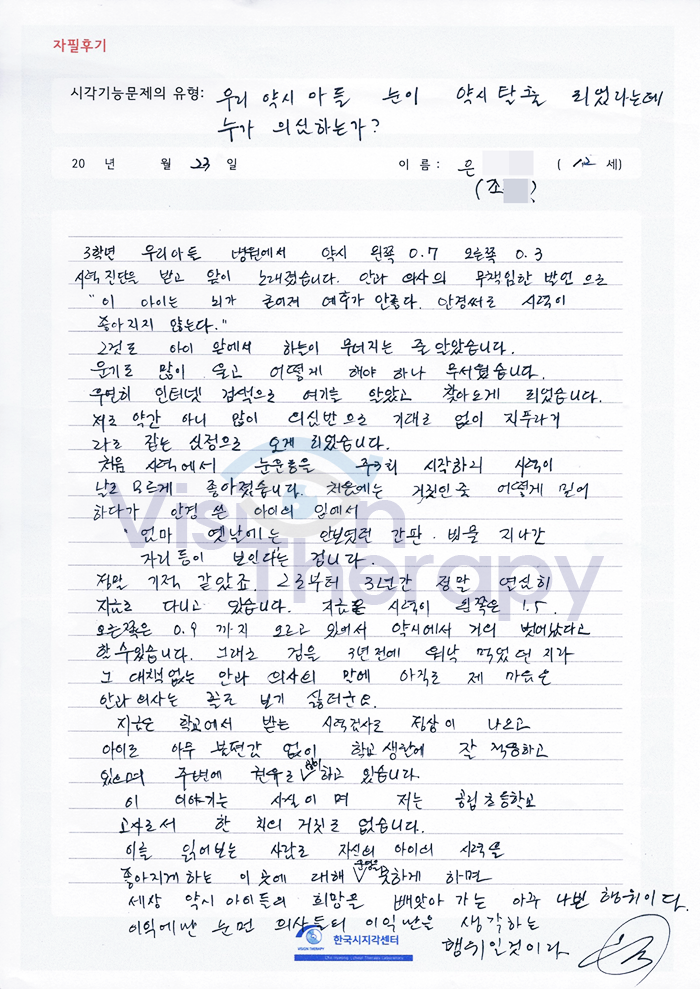 자필후기
시각기능문제의 유형: 우리 약시 아들 눈이 약시탈출 되었다는데
누가 의심하는가?
20 년 월 23 일 이 름 : 은 ( 12 세)
(조 )
3학년 우리아들 병원에서 약시 왼쪽 0.7 오른쪽 0.3
시력진단을 받고 앞이 노래졌습니다. 안과 의사의 무책임한 발언 으로
"이 아이는 뇌가 굳어져 예후가 안좋다. 안경써도 시력이
좋아지지 않는다."
그것도 아이 앞에서 하늘이 무너지는 줄 알았습니다.
울기도 많이 울고 어떻게 해야 하나 무서웠습니다.
우연히 인터넷 검색으로 여기를 알았고 찾아오게 되었습니다.
저도 약간 아니 많이 의심반으로 기대도 없이 지푸라기
라도 잡는 심정으로 오게 되었습니다.
처음 시력에서 눈운동을 시작하니 시력이
날로 모르게 좋아졌습니다. 처음에는 거짓인 줄 어떻게 믿어
하다가 안경 쓴 아이의 입에서
"엄마 옛날에는 안보였던 간판. 버스 지나간
자리 등이 보인다는 겁니다.
정말 기적 같았죠. 그로부터 3년간 정말 열심히
지금도 다니고 있습니다. 지금은 시력이 왼쪽은 1.5.
오른쪽은 0.9 까지 오르고 있어서 약시에서 거의 벗어났다고
할수있습니다. 그래도 겁을 3년전에 워낙 먹었던 지라
그 대책없는 안과 의사의 말에 아직도 제 마음은
안과의사는 꼴도 보기 싫더군요.
지금은 학교에서 받는 시력검사로 정상이 나오고
아이도 아무 불편감 없이 학교생활에 잘 적응하고
있으며 주변에 권유도 많이 하고 있습니다.
이 이야기는 사실이며 저는 공립초등학교
교사로서 한 치의 거짓도 없습니다.
이를 읽어보는 사람도 자신의 아이의 시력을
좋아지게하는 이 곳에 대해 운영을 못하게 하면
세상 약시 아이들의 희망을 빼앗아 가는 아주 나쁜 행위이다.
이익에만 눈먼 의사들의 이익만을 생각하는
행위일것이다
Vision Therapy
VISION THERAPY 한국시지각센터